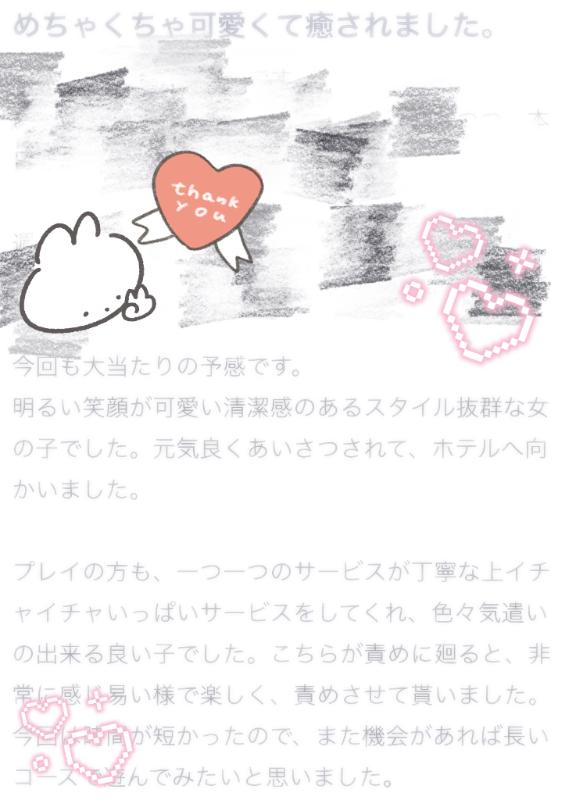 めちゃくちゃ可愛くて癒されました。
thank
you
今回も大当たりの予感です。
明るい笑顔が可愛い清潔感のあるスタイル抜群な女
の子でした。元気良くあいさつされて、ホテルへ向
かいました。
プレイの方も、一つ一つのサービスが丁寧な上イチ
ャイチャいっぱいサービスをしてくれ、色々気遣い
の出来る良い子でした。こちらが責めに廻ると、非
常に感じ易い様で楽しく、責めさせて貰いました。
今回は時間が短かったので、また機会があれば長い
コースで遊んでみたいと思いました。